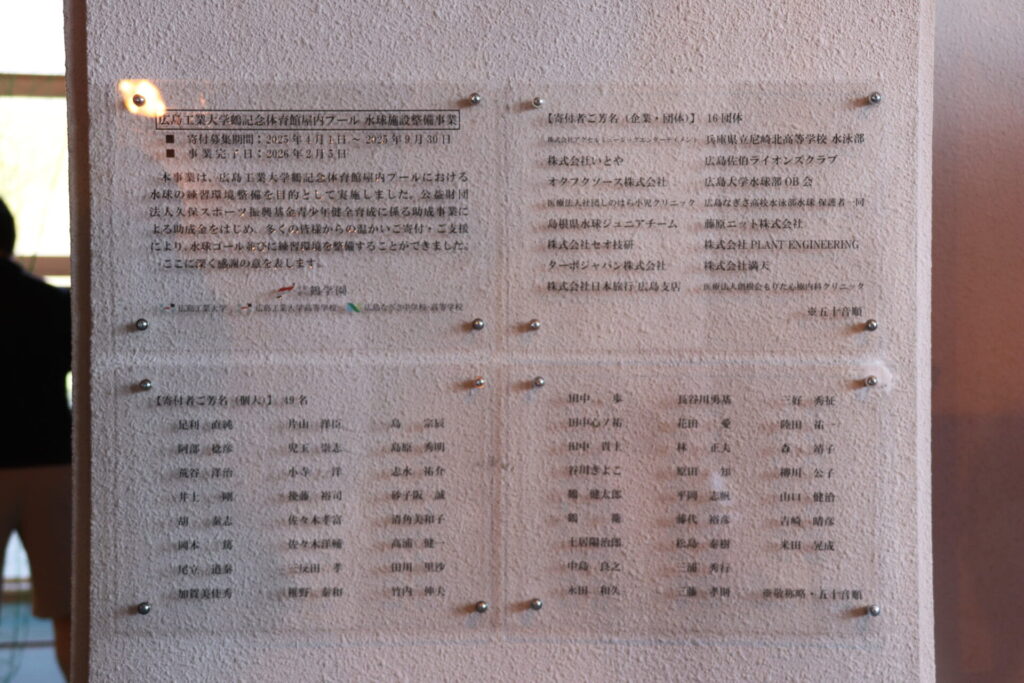 広島工業大学鶴記念体育館屋内プール 水球施設整備事業
■ 寄付募集期間：2025年4月1日～2025年9月30日
■ 事業完了日：2026年2月5日
本事業は、広島工業大学鶴記念体育館屋内プールにおける
水球の練習環境整備を目的として実施しました。公益財団
法人久保スポーツ振興基金青少年健全育成に係る助成事業に
よる助成金をはじめ、多くの皆様からの温かいご寄付・ご支援
により、水球ゴール並びに練習環境を整備することができました。
ここに深く感謝の意を表します。
鶴学園
広島工業大学 広島工業大学高等学校 広島なぎさ中学校・高等学校
【寄付者ご芳名（企業・団体）】 16団体
株式会社アクセルミュージックエンターテイメント 兵庫県立尼崎北高等学校 水泳部
株式会社いとや 広島佐伯ライオンズクラブ
オタフクソース株式会社 広島大学水球部OB会
医療法人社団しのはら小児クリニック 広島なぎさ高校水泳部水球 保護者一同
島根県水球ジュニアチーム 藤原ニット株式会社
株式会社セオ技研 株式会社 PLANT ENGINEERING
ターボジャパン株式会社 株式会社満天
株式会社日本旅行 広島支店 医療法人創樹会もりた心臓内科クリニック
※五十音順
【寄付者ご芳名（個人）】 49名
足利 直純 片山 洋臣 島 宗辰
阿部 稔彦 児玉 崇志 島原 秀明
荒谷 洋治 小寺 洋 志水 祐介
井上 剛 後藤 裕司 砂子阪 誠
胡 泰志 佐々木孝富 清角美和子
岡本 篤 佐々木洋輔 高浦 健一
尾立 道泰 三反田 孝 田川 里沙
加賀美佳秀 椎野 泰和 竹内 伸夫
田中 歩 長谷川勇基 三好 秀征
田中心ノ祐 花田 愛 陸田 祐一
田中 貴士 林 正夫 森 靖子
谷川きよこ 原田 知 柳川 公子
鶴 健太郎 平岡 志帆 山口 健治
鶴 衛 藤代 裕彦 吉崎 晴彦
土居陽治郎 松島 泰樹 米田 晃成
中島 良之 三浦 秀行
永田 和久 三藤 孝則 ※敬称略・五十音順